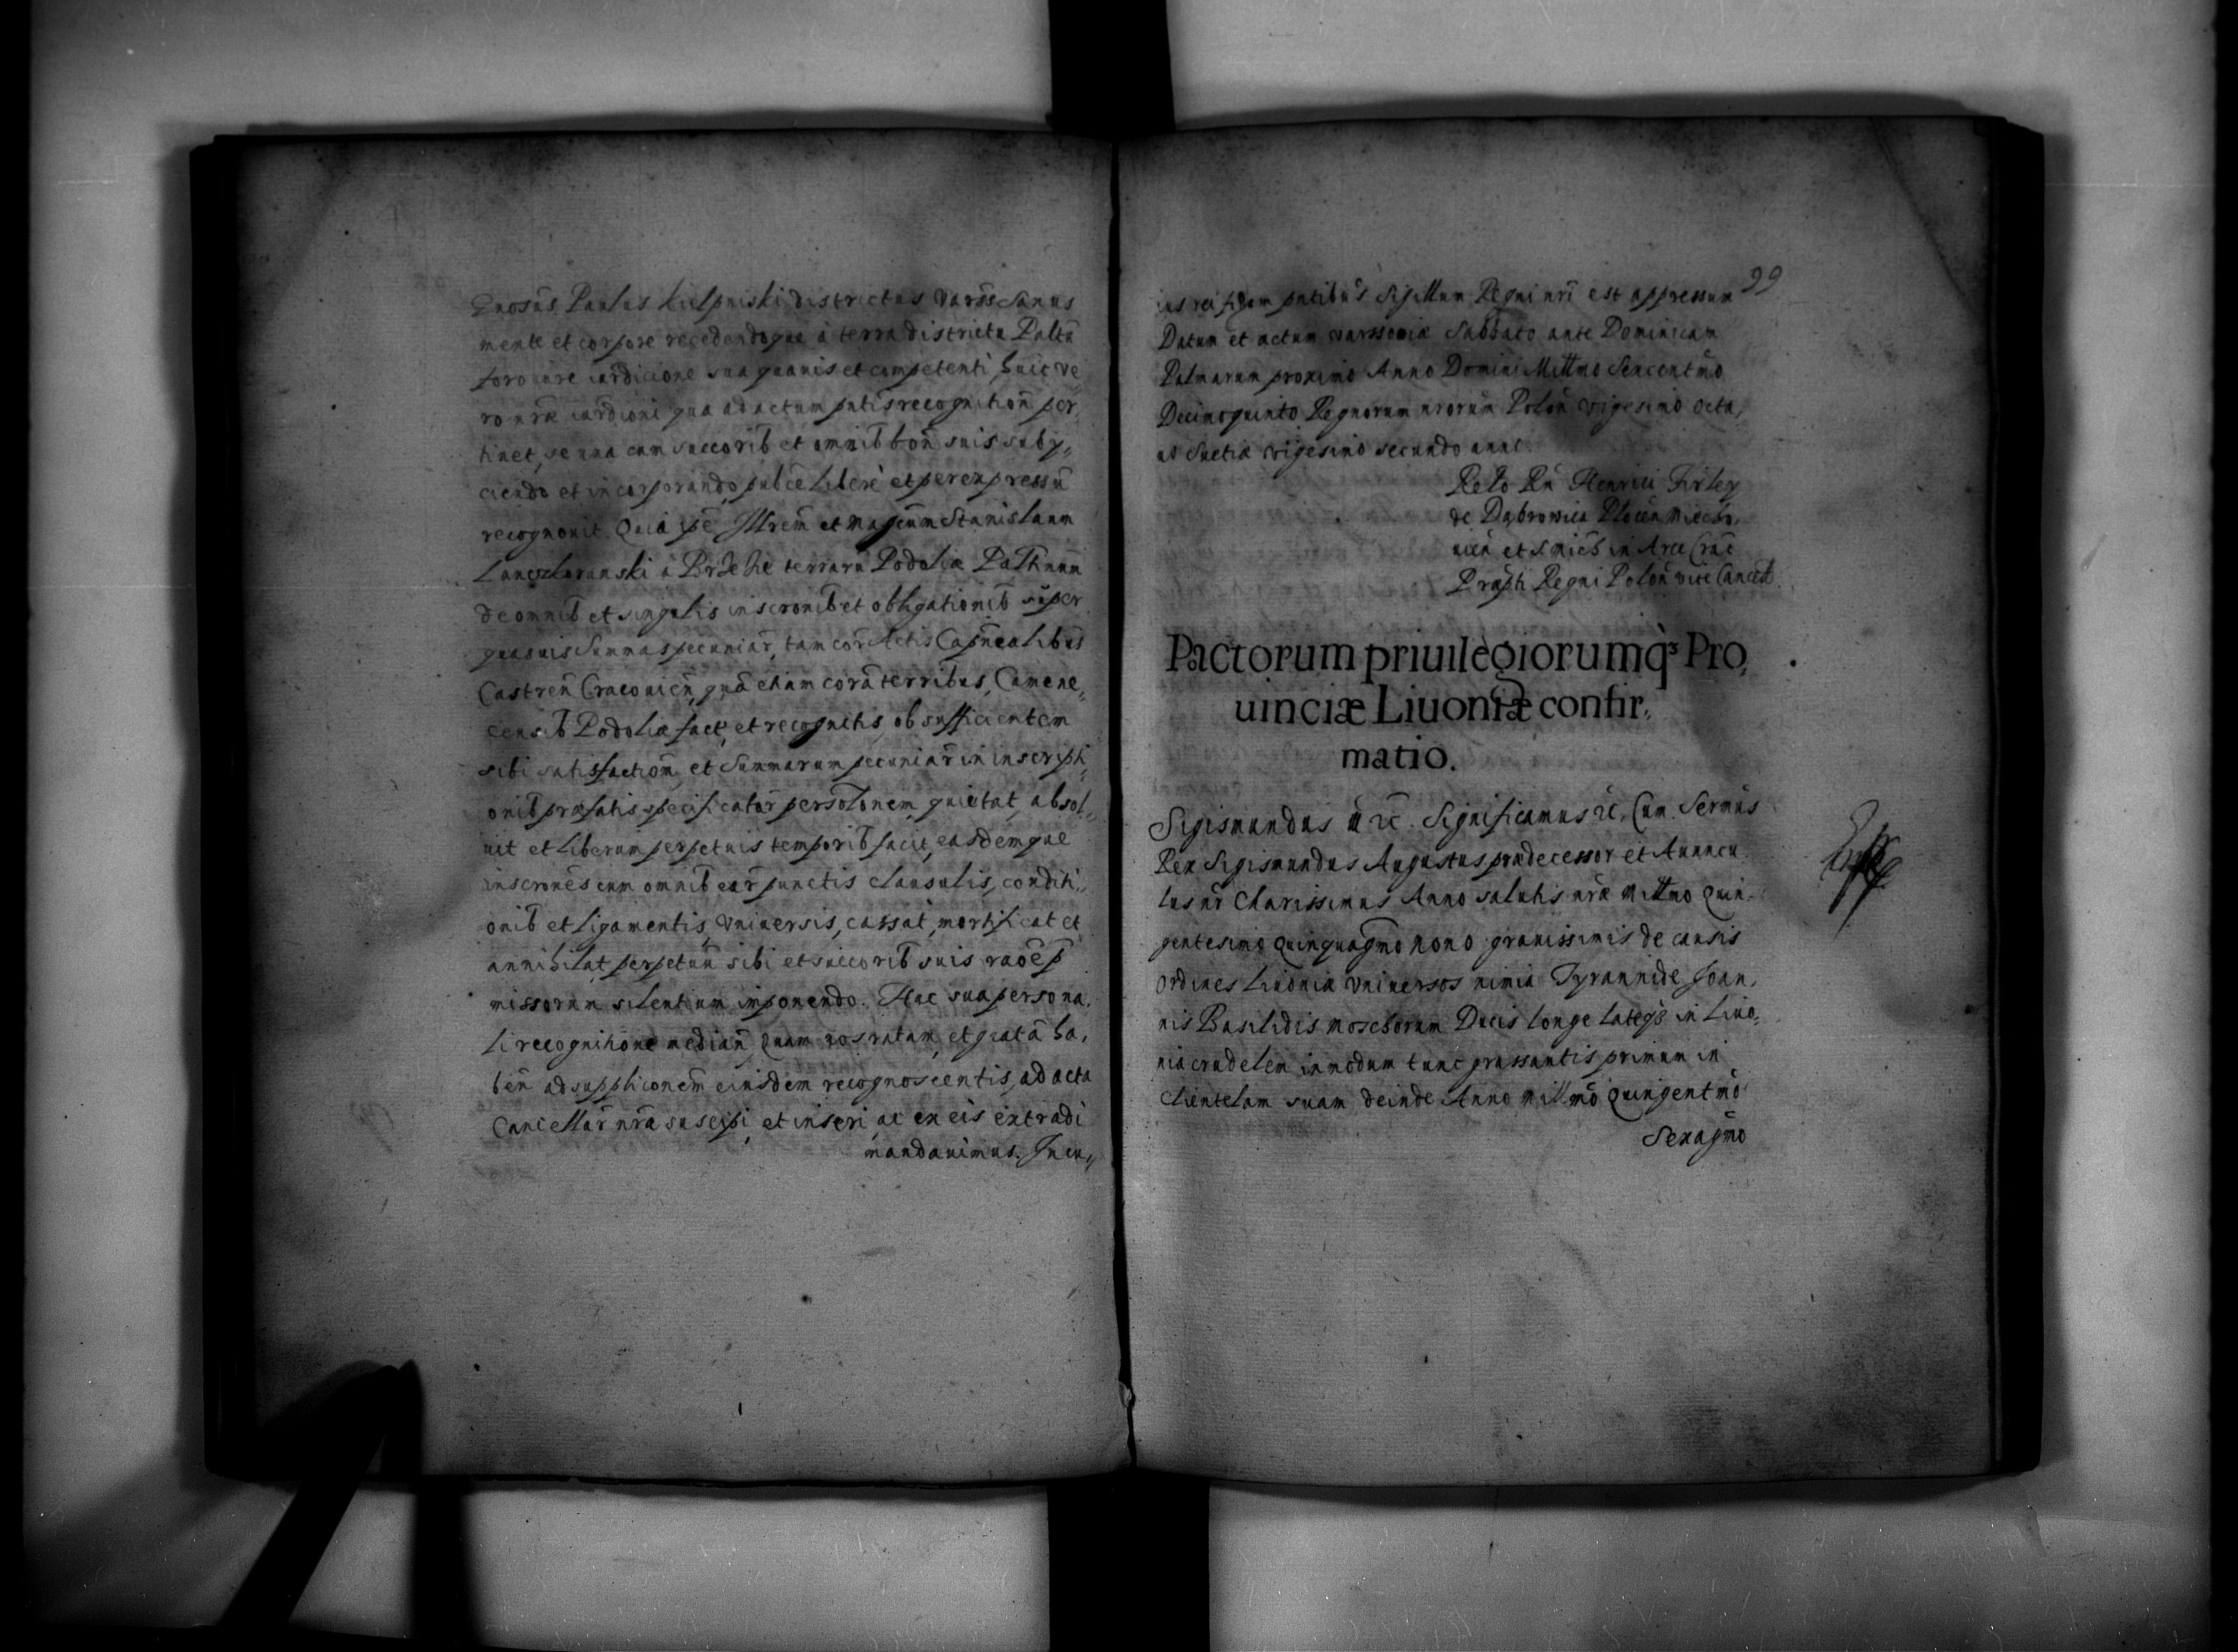 Gnosūs Paulus Kielpinski districtus Varss Sanus
mente et corpore recedendoque a terra districtu Paltū
foro iure iurdicione sua quauis et competenti, huic ve„
ro nrae iurdioni qua ad actum pntis recognition̄ per„
tinet, se una cum succorib et omnib bon̄ suis suby„
ciendo et incorporando, publce libere et per expressū
recognouit. Quia ipē Illrem̄ et Magcum Stanislaum
Lanczkorunski a Brzezie terrarū Podoliae Palthnum
de omnib et singulis inscronib et obligationib super
quasuis Summas pecuniar, tam cor Actis Capnealibus
Castren̄ Cracouien̄, quā etiam corā terribus, Camene„
censib Podoliae fact, et recognitis, ob sufficientem
sibi satisfaction̄, et Summarum pecuniar̄ in inscripti„
onib praefatis specificatar̄ persolonem, quietat, absol„
uit et liberum perpetuis temporib facit, easdemque
inscronēs cum omnib ear̄ punctis clausulis, conditi„
onib et ligamentis, vniuersis, cassat, mortificat et
annihilat perpetuū sibi et succorib suis raōe p
missorum silentium imponendo. Hac sua persona,
li recognitione median̄, quam nos ratam, et gratā ha,
ben̄ ad supplicionem̄ eiusdem recognoscentis, ad acta
Cancellar̄ nrā suscipi, et inseri, ac ex eis extradi
mandauimus. In cu„
99
ius rei fidem pntibus Sigillum Regni nri est appressum
Datum et actum Varssouiae Sabbato ante Dominicam
Palmarum proximo Anno Domini Millmo Sexcentmo
Decimoquinto Regnorum nrorum Polon̄ vigesimo octa,
uo Suetiae vigesimo secundo anni.
Relo Rn̄ Henrici Firley
de Dąbrowica Plocen̄ Miecho,
uien̄ et S. Mich in Arce Crac̄
Praepti Regni Polon̄ vice Cancell
Pactorum priuilegiorumq̀3 Pro,
uinciæ Liuoniæ confir„
matio.
Sigismundus iii etc. Significamus etc. Cum Sermūs
Rex Sigismundus Augustus praedecessor et Auuncu
lus nr̄ Clarissimus Anno salutis nrae Millmo Quin.
gentesimo quinquagmo nono grauissimis de causis
ordines Liuoniae vniuersos nimia Tyrannide Joan,
nis Basilidis Moschorum Ducis longe lateq3 in Liuo„
nia crudelem in modum tunc grassantis primum in
clientelam suam deinde Anno Millmo Quingentmo
Sexagmo